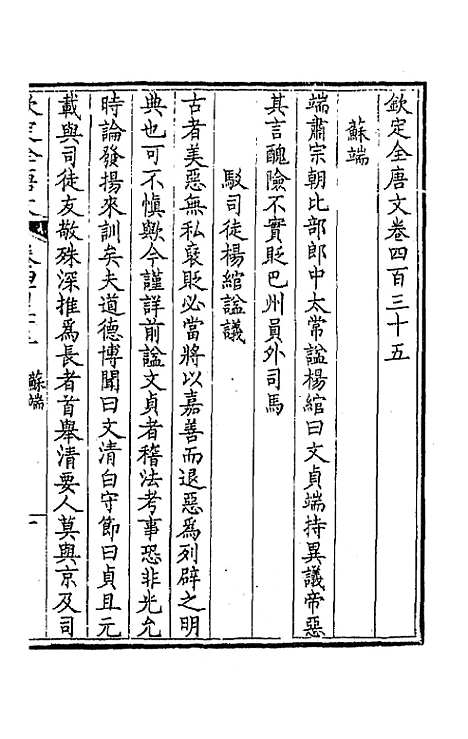 欽定全唐文卷四百三十五
蘇端
端肅宗朝比部郎中太常諡楊綰曰文貞端持異議帝惡
其言醜險不實貶巴州員外司馬
駁司徒楊綰諡議
古者美惡無私褒貶必當將以嘉善而退惡為列辟之明
典也可不慎歟今謹詳前諡文貞者稽法考事恐非光允
時論發揚來訓矣夫道德博聞曰文清白守節曰貞且元
載與司徒友敬殊深推為長者首舉清要人莫與京及司
蘇端